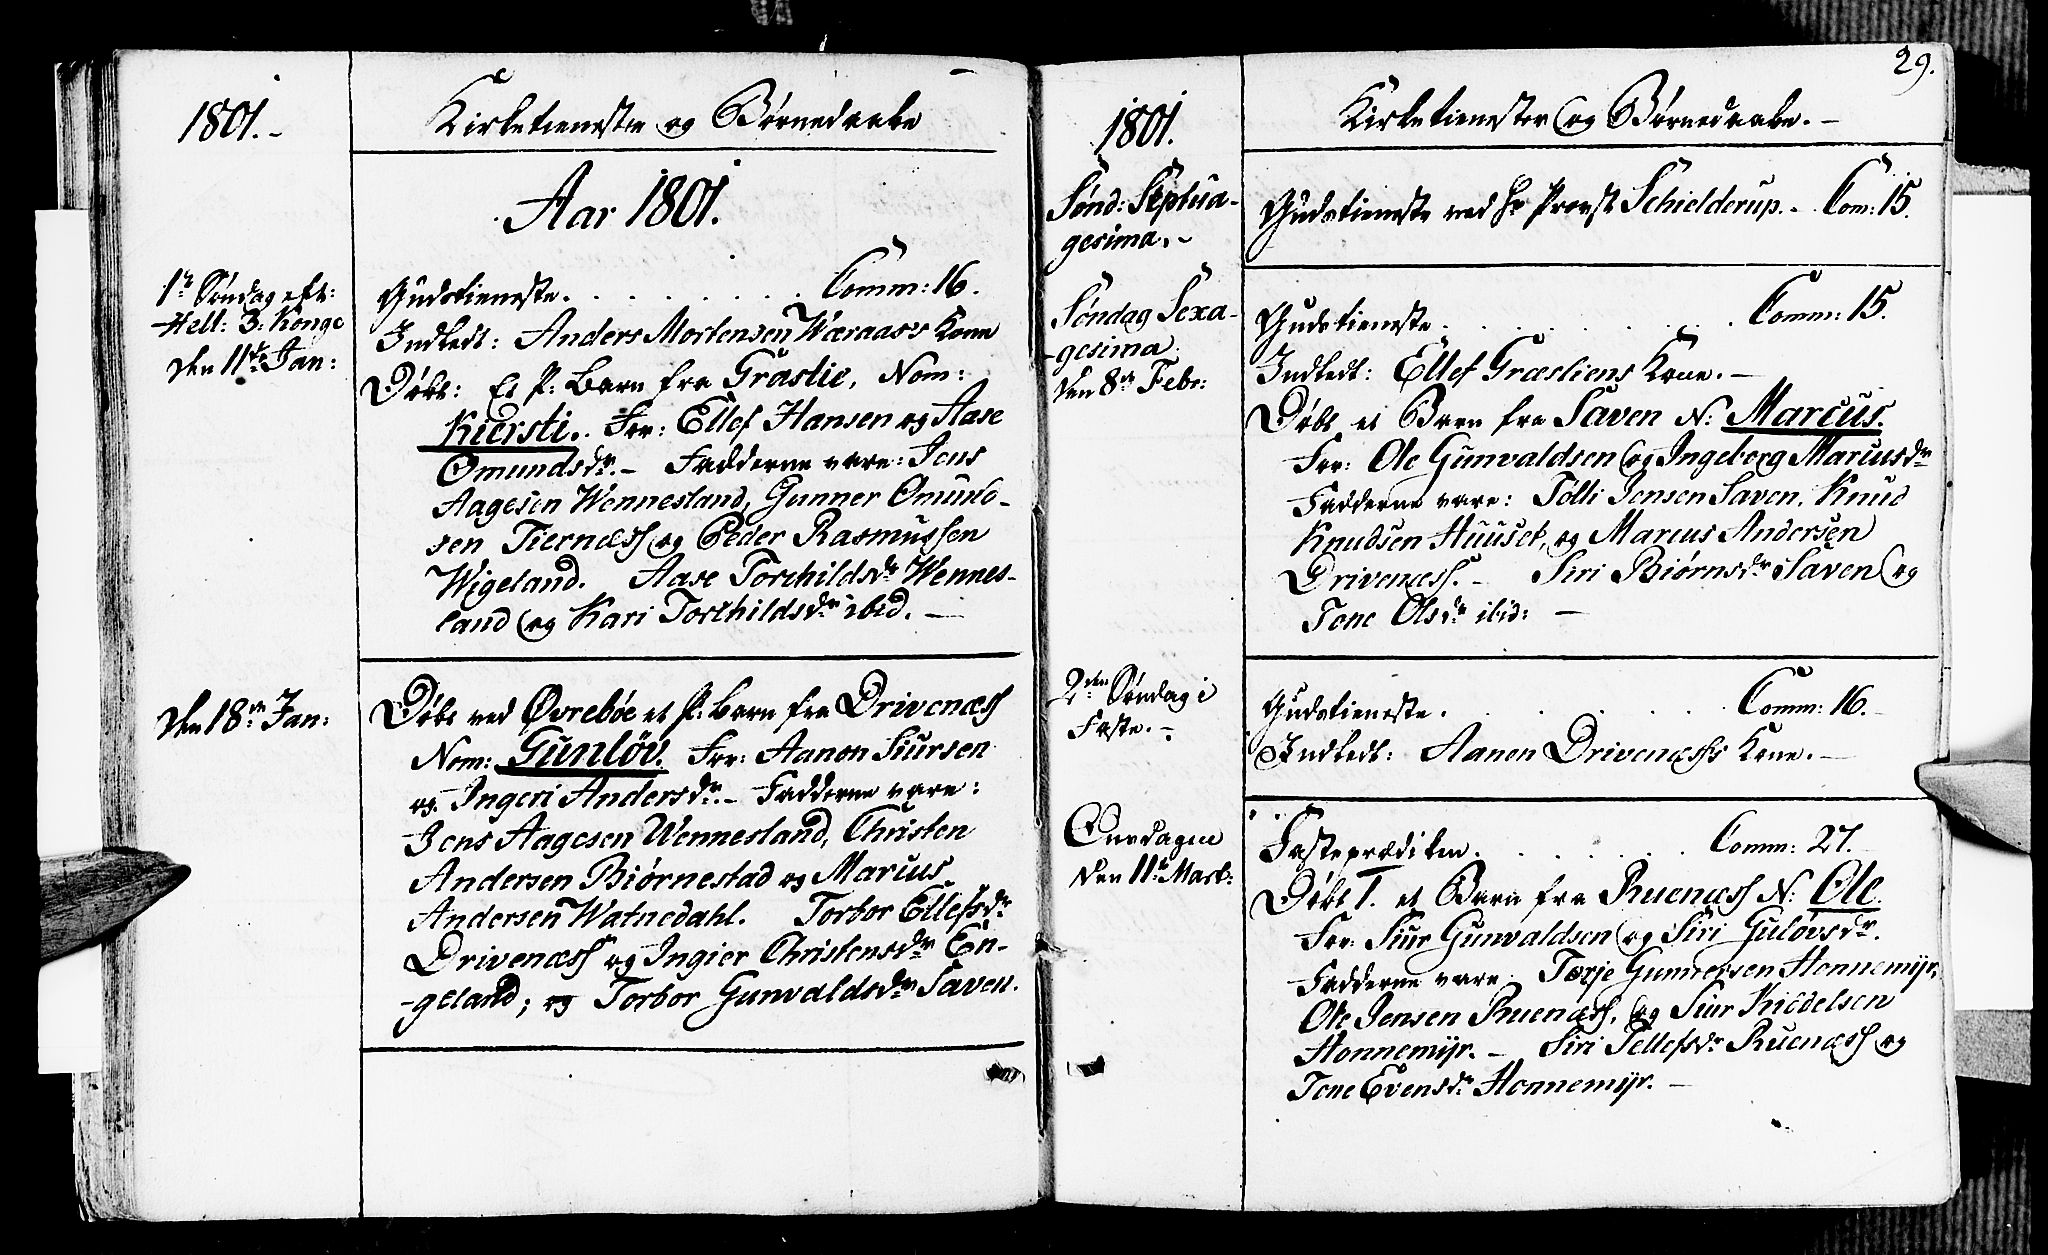 1801.-
Kirketieneste og Børnedaabe
Aar 1801.
1te Søndag eft:
Hell: 3: Konge
den 11te Jan:
Gudstieneste. . . . . . . . Comm: 16.
Indledt: Anders Mortensen Wæraas's Kone
Døbt: Et P: Barn fra Græslie, Nom:
Kiersti. For: Ellef Hansen og Aase
Omundsdr. – Fadderne vare: Jens
Aagesen Wennesland, Gunner Omund-
sen Tiernæss og Peder Rasmussen
Wigeland. Aase Torchildsdr Wennes-
land og Kari Torchildsdr ibid. –
den 18de Jan:
Døbt ved Øvrebøe et P: Barn fra Drivenæss
Nom: Gunløv. For: Aanon Siursen
og Ingeri Andersdr. – Fadderne vare:
Jens Aagesen Wennesland, Christen
Andersen Biørnestad og Marcus
Andersen Watnedahl. Torbor Ellefsdr
Drivenæss og Ingier Christensdr En-
-geland; og Torbor Gunvaldsdr Saven.
29.
1801.
Kirketienester og Børnedaabe. –
Sønd: Septua-
gesima. -
Gudstieneste ved Hr Provst Schielderup. - Com: 15.
Søndag Sexa-
-gesima
den 8de Febr:
Gudstieneste. . . . . . . . . Comm: 15.
Indledt: Ellef Græsliens Kone. –
Døbt et Barn fra Saven N: Marcus.
For: Ole Gunvaldsen og Ingeborg Marcusdr
Fadderne vare: Tolli Jensen Saven, Knud
Knudsen Huuset, og Marcus Andersen
Drivenæss. – Siri Biørnsdr Saven og
Tone Olsdr ibid: –
2den Søndag i
Faste. -
Gudstieneste. . . . . . . . Comm: 16.
Indledt: Aanen Drivenæss's Kone. –
Onsdagen
den 11te Mart:
Fasteprædiken. . . . . . . Comm: 27.
Døbt 1. et Barn fra Ruenæss N: Ole.
For: Siur Gunvaldsen og Siri Guløvsdr.
Fadderne vare: Torje Gunnersen Honnemyr,
Ole Jensen Ruenæss, og Siur Kiedelsen
Honnemyr. – Siri Tellefsdr Ruenæss og
Tone Evensdr Honnemyr. –